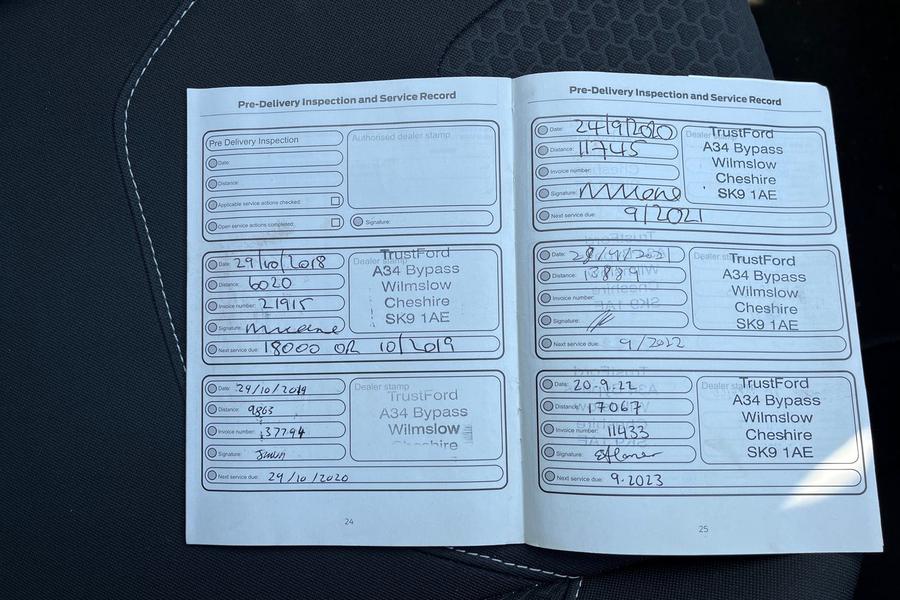 Pre-Delivery Inspection and Service Record
Pre Delivery Inspection
Authorised dealer stamp
Date:
Distance:
Applicable service actions checked:
Open service actions completed:
Signature:
Date: 29/10/2018
Distance: 6020
Invoice number: 21915
Signature:
Next service due: 18000 OR 10/2019
Dealer stamp
TrustFord
A34 Bypass
Wilmslow
Cheshire
SK9 1AE
Date: 29/10/2019
Distance: 9863
Invoice number: 37794
Signature:
Next service due: 29/10/2020
Dealer stamp
TrustFord
A34 Bypass
Wilmslow
Cheshire
24
Pre-Delivery Inspection and Service Record
Date: 24/9/2020
Distance: 11745
Invoice number:
Signature:
Next service due: 9/2021
Dealer
TrustFord
A34 Bypass
Wilmslow
Cheshire
SK9 1AE
Date:
Distance: 13889
Invoice number:
Signature:
Next service due: 9/2022
Dealer
TrustFord
A34 Bypass
Wilmslow
Cheshire
SK9 1AE
Date: 20-9-22
Distance: 17067
Invoice number: 11433
Signature:
Next service due: 9.2023
Dealer
TrustFord
A34 Bypass
Wilmslow
Cheshire
SK9 1AE
25